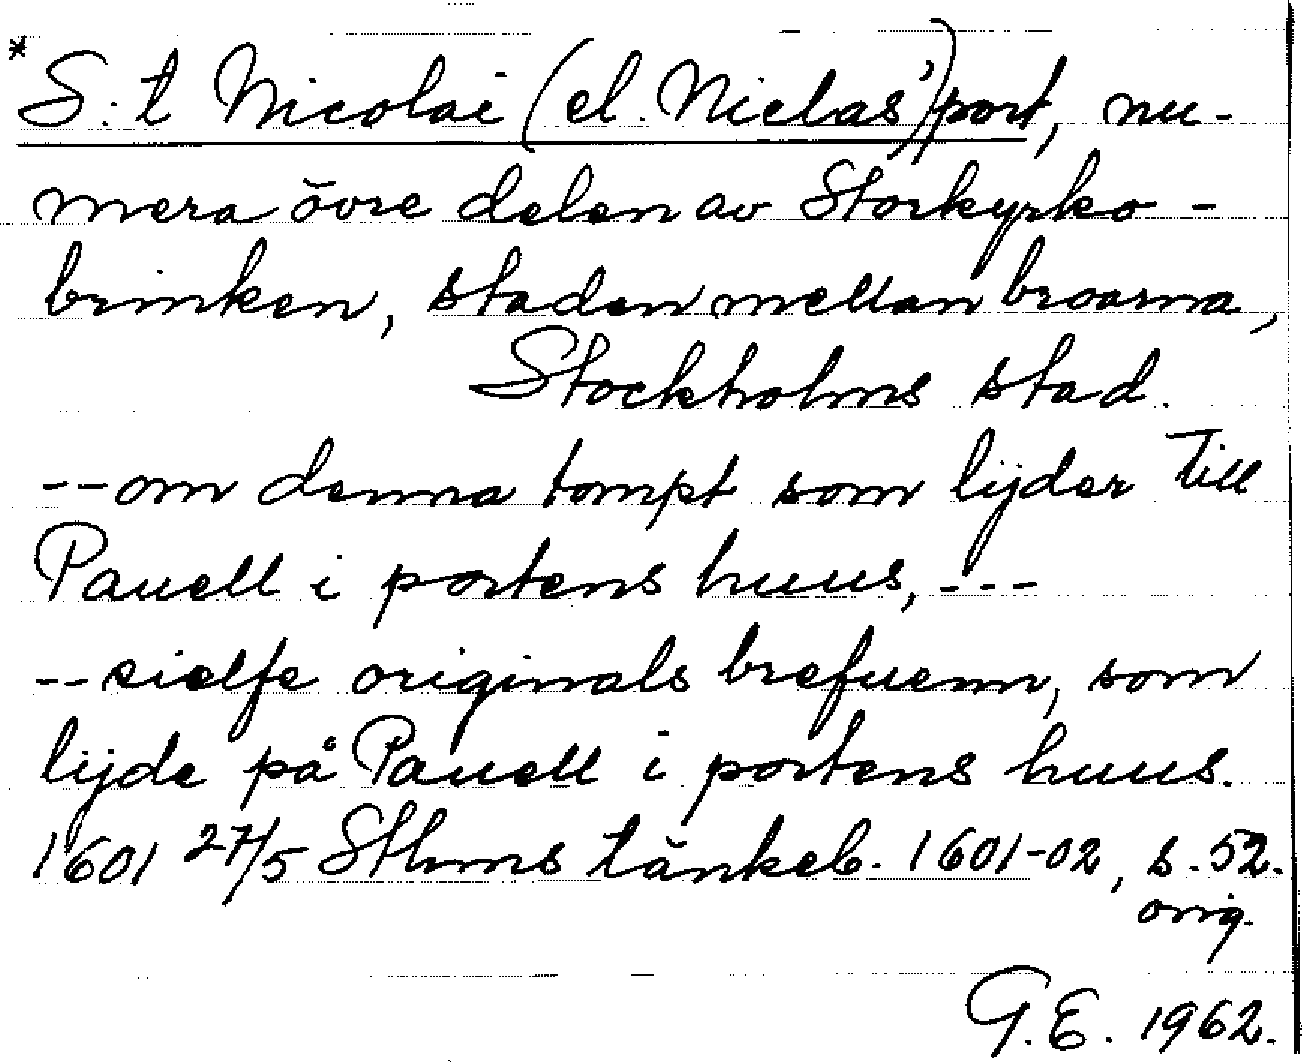 *S:t Nicolai (el. Niclas')port, nu-
mera övre delen av Storkyrko-
brinken, staden mellan broarna,
Stockholms stad.
--om denna tompt som lijder till
Pauell i portens huus,---
--sielfe originals brefuenn, som
lijde på Pauell i portens huus.
1601 27/5 Sthms tänkeb. 1601-02, s. 52.
orig.
G.E. 1962.